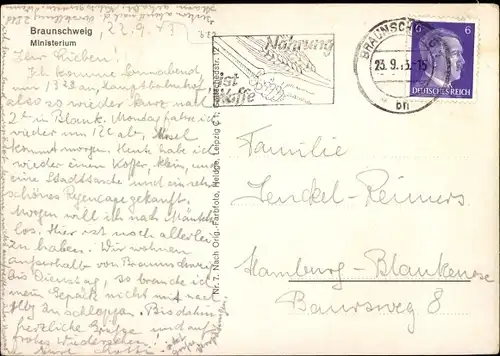 Braunschweig
Ministerium
22.9.43
Ihr Lieben.
Ich komme Sonnabend
um 13 22 an, Hauptbahnhof,
also so wieder kurz nach
2 in Blank. Montag fahre ich
wieder um 12 ab,
kommt morgen. Heute habe ich
wieder einen Koffer, klein, und
eine Stadttasche und ein sehr
schönes Regencape gekauft.
Morgen will ich nach
los. Hier ist noch allerlei
zu haben. Wir wohnen
ausserhalb von Braunschweig
bis Dienstag, so brauche ich
mein Gepäck nicht mit nach
Hbg an schleppen. Bis dahin
herzliche Grüße und auf
frohes Wiedersehen!
Eure
Nr. 7. Nach Orig.-Farbfoto, Heldge, Leipzig C 1,
Nahrung
ist
Waffe
BRAUNSCHWEIG
23.9.43.-15
bh
6
6
DEUTSCHES REICH
Familie
Jenckel-Reimers
Hamburg-Blankenese
Baursweg 8